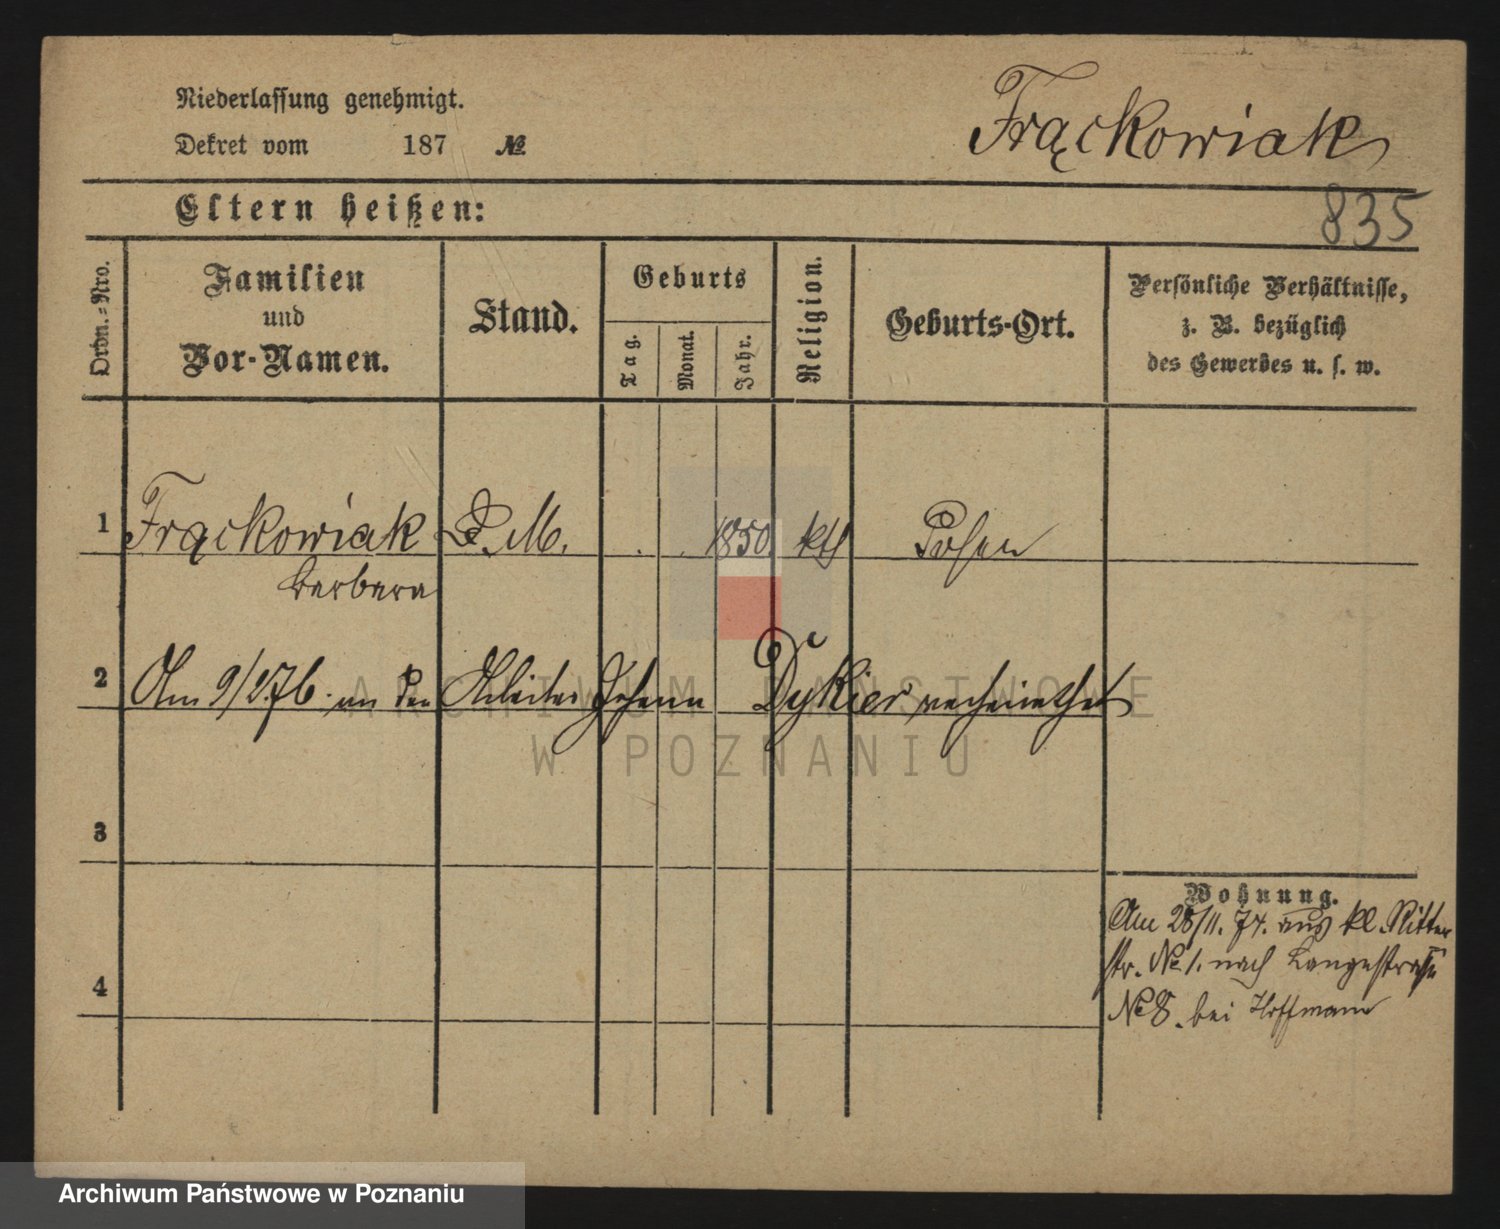 Niederlassung genehmigt.
Frąckowiak
Dekret vom 187 №
Eltern heißen:
835
Ordn.-Nro.
Familien
und
Vor-Namen.
Stand.
Geburts
Tag.
Monat.
Jahr.
Religion.
Geburts-Ort.
Persönliche Verhältnisse,
z. B. bezüglich
des Gewerbes u. s. w.
1 Frąckowiak D. M. . . 1850 kth Posen
Barbara
2 Am 9/2 76. an den Arbeiter Johann Dykier verheirathet
ARCHIWUM PAŃSTWOWE
W POZNANIU
3
Wohnung.
Am 28/11. 74. aus kl. Ritter
str. № 1. nach Langestraße
4
№ 8. bei Hoffmann
Archiwum Państwowe w Poznaniu